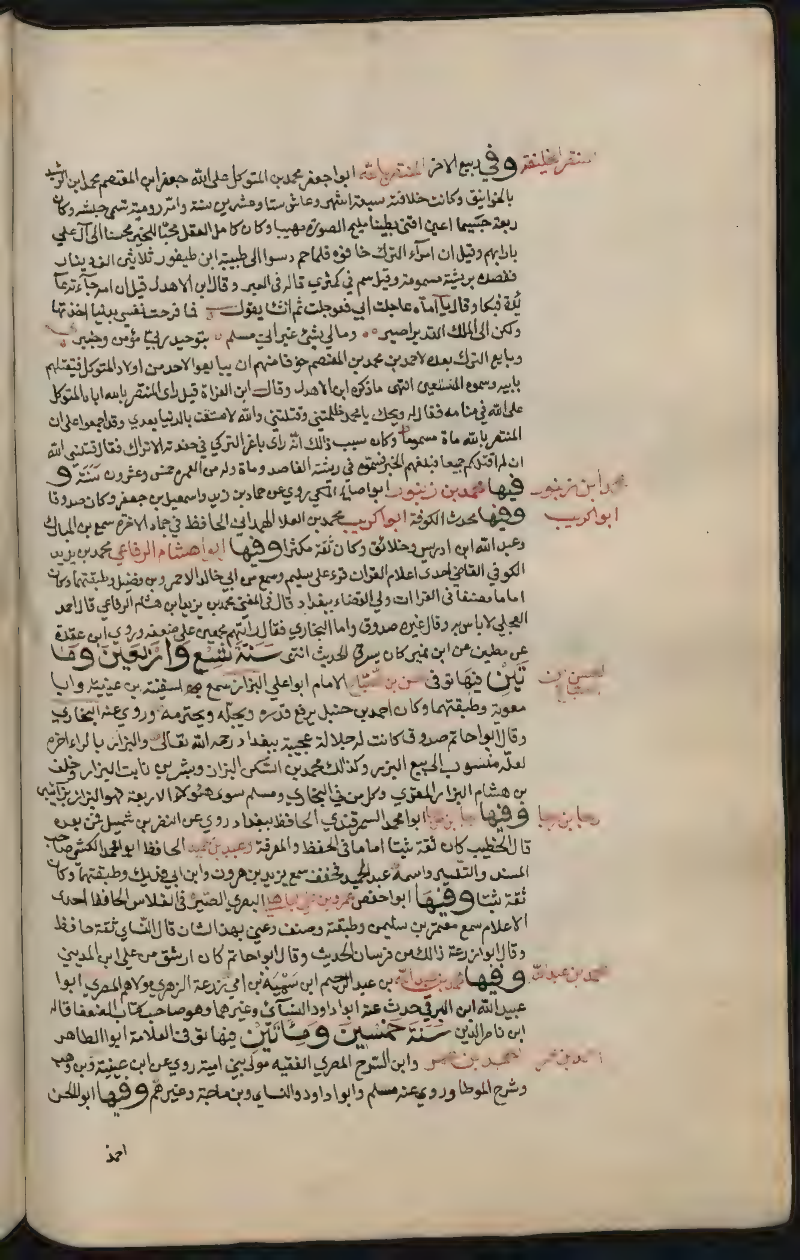 منتصر الخليفة
وفي ربيع الاخر المنتصر بالله ابو اجعفر محمد بن المتوكل على الله جعفر ابن المعتصم محمد ابن الرشيد
بالخوانيق وكانت خلافته سبعة اشهر وعاش ستا وعشرين سنة وامه رومية تسمى حبشه وكان
ربعة جسيما اعين اقنى بطينا مليح الصورة مهيبا وكان كامل العقل محبا للخير محسنا الى آل علي
بارا بهم وقيل ان امرآء الترك خافوه فلما حم دسوا الى طبيبه ابن طيفور ثلاثين الف دينار
ففصده بريشة مسمومة وقيل سم في كمثرى قاله في العبر وقال ابن الاهدل قيل ان امه جآءته
فبكا وقال يا اماه عاجلت ابي فعوجلت ثم انشا يقول فما فرحت نفسي بدنيا اخذتها
ولكن الى الملك القدير اصير وما لي شئ غير اني مسلم بتوحيد ربي مؤمن وخبير
وبايع الترك بعده لاحمد بن محمد بن المعتصم خوفا منهم ان يبايعوا لاحد من اولاد المتوكل فيقتلهم
بابيه وسموه المستعين انتهى ماذكره ابن الاهدل وقال ابن الفراة قيل راى المنتصر بالله اباه المتوكل
على الله في منامه فقال له ويحك يا محمد ظلمتني وقتلتني والله لامتعت بالدنيا بعدي وقد اجمعوا على ان
المنتصر بالله مات مسموما وكان سبب ذالك انه راى باغر التركي في حفدته الاتراك فقال قتلني الله
ان لم اقتلكم جميعا فبلغهم الخبر فسموه في ريشة الفاصد ومات وله من العمر خمس وعشرون سنة و
محمد ابن زنبور
فيها محمد بن زنبور ابو اصالح المكي روى عن حماد بن زيد واسمعيل بن جعفر وكان صدوقا
ابو اكريب
وفيها محدث الكوفة ابو اكريب محمد بن العلا الهمداني الحافظ في جماد الاخره سمع بن المبارك
وعبد الله ابن ادريس وخلائق وكان ثقة مكثرا وفيها ابو اهشام الرفاعي محمد بن يزيد
الكوفي القاضي احدى اعلام القران قرء على سليم وسمع من ابي خالد الاحمر وبن فضيل وطبقتهما وكان
اماما مصنفا في القراات ولي القضاء ببغداد قال في المغني محمد بن يزيد ابن هشام الرفاعي قال احمد
العجلي لاباس به وقال غيره صدوق واما البخاري فقال رايتهم مجمعين على ضعفه وروى ابن عقدة
عن مطين عن ابن نمير كان يسرق الحديث انتهى سنة تسع واربعين وما
الحسن بن الصباح
تين فيها توفي حسن بن الصباح الامام ابو اعلي البزار سمع سفينة بن عيينة وابا
معوية وطبقتهما وكان احمد بن حنبل يرفع قدره ويجله ويحترمه وروى عنه البخاري
وقال ابو احاتم صدوق كانت له جلالة عجيبة ببغداد رحمه الله تعالى والبزار بالراء اخره
لعله منسوب الى بيع البزير وكذلك محمد بن السكن البزار وبشر بن ثابت البزار وخلف
بن هشام البزار المقري وكل من في البخاري ومسلم سوى هئولاء الاربعة فهو البزاز بزائين
رجا بن رجا
وفيها رجا بن رجا ابو محمد السمرقندي الحافظ ببغداد روى عن النضر بن شميل فمن بعده
قال الخطيب كان ثقة ثبتا اماما في الحفظ والمعرفة وعبد بن حميد الحافظ ابو محمد الكشي صاحب
المسند والتفسير واسمه عبد الحميد فخفف سمع يزيد بن هرون وابن ابي فديك وطبقتهما وكان
ثقة ثبتا وفيها ابو احفص عمرو بن علي الباهلي البصري الصيرفي الفلاس الحافظ احدى
الاعلام سمع معتمر بن سليمن وطبقته وصنف وعني بهذا الشان قال النساي ثقة حافظ
وقال ابو ازرعة ذالك من فرسان الحديث وقال ابو احاتم كان ارشق من علي ابن المديني
محمد بن عبد الله
وفيها محمد بن عبد الله بن عبد الرحيم ابن سعيه بن ابي زرعة الزهري مولاهم المصري ابو ا
عبيد الله ابن البرقي حدث عنه ابو اداود والنسآئي وغيرهما وهو صاحب كتاب الضعفا قاله
ابن ناصر الدين سنة خمسين ومائتين فيها توفي العلامة ابو الطاهر
احمد بن عمر
احمد بن عمر وابن السرح المصري الفقيه مولى بني امية روى عن ابن عيينة وبن وهب
وشرح الموطا وروى عنه مسلم وابو اداود والنساي وبن ماجة وغيرهم وفيها ابو الحسن
احمد